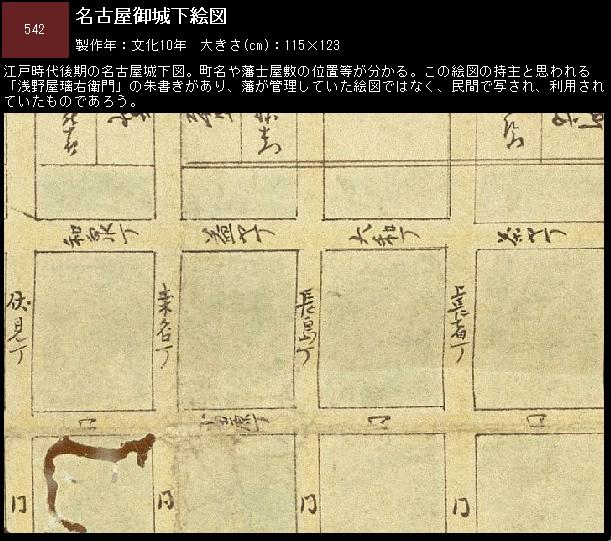 542
名古屋御城下絵図
製作年：文化10年　大きさ(cm)：115×123
江戸時代後期の名古屋城下図。町名や藩士屋敷の位置等が分かる。この絵図の持主と思われる
「浅野屋璃右衛門」の朱書きがあり、藩が管理していた絵図ではなく、民間で写され、利用され
ていたものであろう。
和泉丁
大和丁
茶や丁
伏見丁
桑名丁
長嶋丁
上長者丁